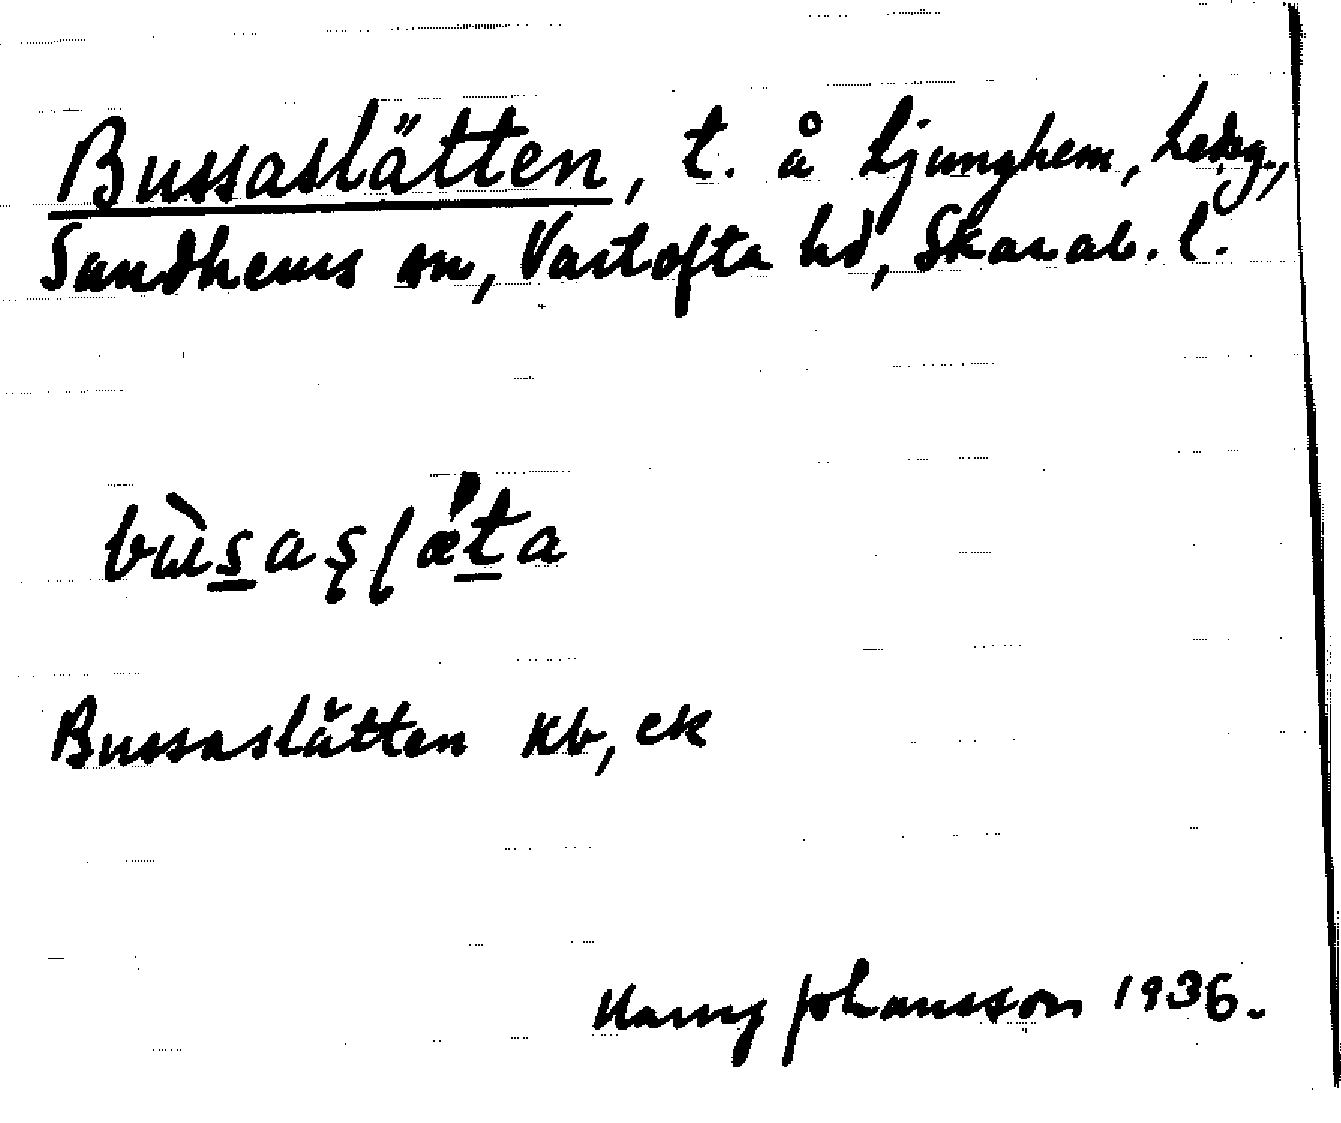 Bussaslätten, t. å Ljunghem, Ledsg.,
Sandhems sn, Vartofta hd, Skarab. l.
bùsasläta
Bussaslätten Kb, ek
Harry Johansson 1936.